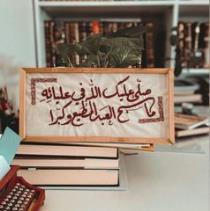 صلى عليك الله في عليائه
ما سبح العبد المطيع وكبرا